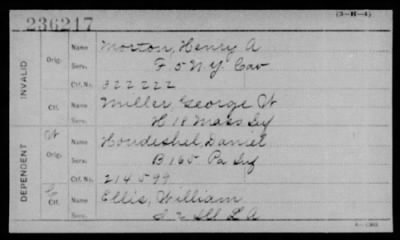 (3-H-4)
236217
INVALID
Orig.
Name Morton, Henry A
Serv. F 5 N.Y. Cav
Ctf. No. 822 222
Ctf.
Name Miller George W
Serv. H 18 Mass Inf
DEPENDENT
W
Orig.
Name Houdeshel, Daniel
Serv. B 165 Pa Inf
Ctf. No. 214 599
C
Ctf.
Name Ellis, William
Serv. I 2 Ill L A